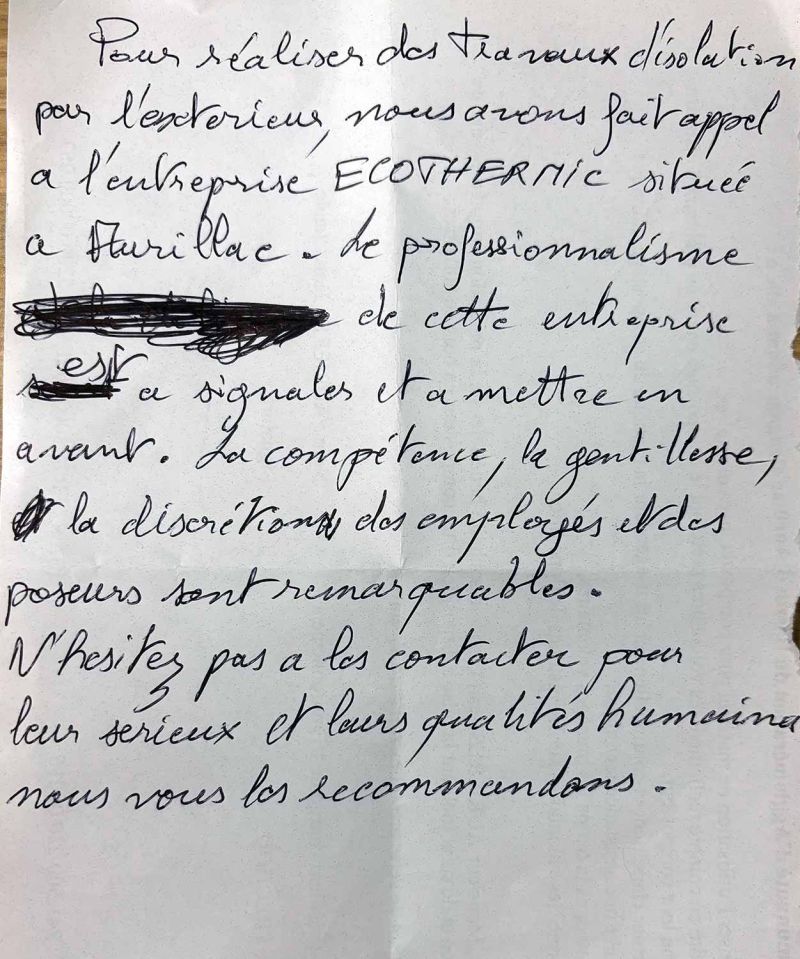 Pour réaliser des travaux d'isolation
par l'exterieur, nous avons fait appel
a l'entreprise ECOTHERMIC située
a Aurillac. Le professionnalisme
de cette entreprise
est a signaler et a mettre en
avant. La compétence, la gentillesse,
la discrétion des employés et des
poseurs sont remarquables.
N'hesitez pas a les contacter pour
leur serieux et leurs qualités humaine
nous vous les recommandons.